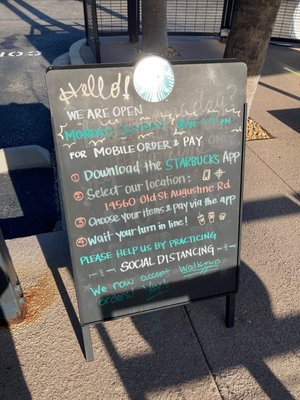 Hello!
WE ARE OPEN
MONDAY-
FOR MOBILE ORDER & PAY
1 Download the STARBUCKS App
2 Select our location:
14560 Old St Augustine Rd
3 Choose your items & Pay via the app
4 Wait your turn in line!
PLEASE HELP US BY PRACTICING
SOCIAL DISTANCING
We now accept Walk-up
orders! Yay!